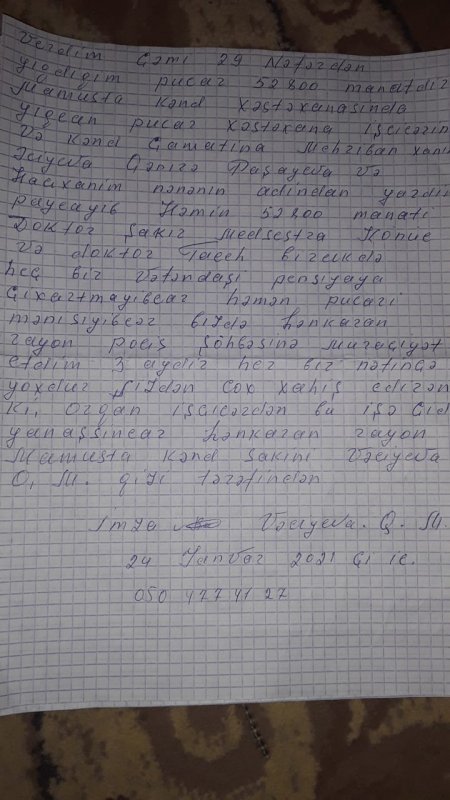 Verdim Cəmi 29 Nəfərdən
yiğdiğim pucar 52800 manatdır
Mamusta kənd xəstəxanasinda
yiğcan pucar xəstəxana işcicərin
Və kənd Camatina Mehriban xanım
Əciyeva Qənirə Paşayeva və
Hacıxanim nənənin adindan yardım
paycayib Həmin 52800 manati
Doktor Şakir Medsestra Könüc
və doktor Taceh bircikdə
heç bir vətəndaşi pensiyaya
Çixartmayibcar həmən pucari
mənisiyibcər bizdə Lənkaran
rayon pocis şöhbəsinə muraciyət
etdim 3 aydir heç bir nəticə
yoxdur sizdən cox xahiş edirəm
ki, Organ işcicərdən bu işə Cid
yanaşsincar Lənkaran rayon
Mamusta kənd Sakini Vəciyeva
Q, M. qizi tərəfindən
İmza Vəciyeva. Q. M.
24 Yanvar 2021 ci ic.
050 477 41 27